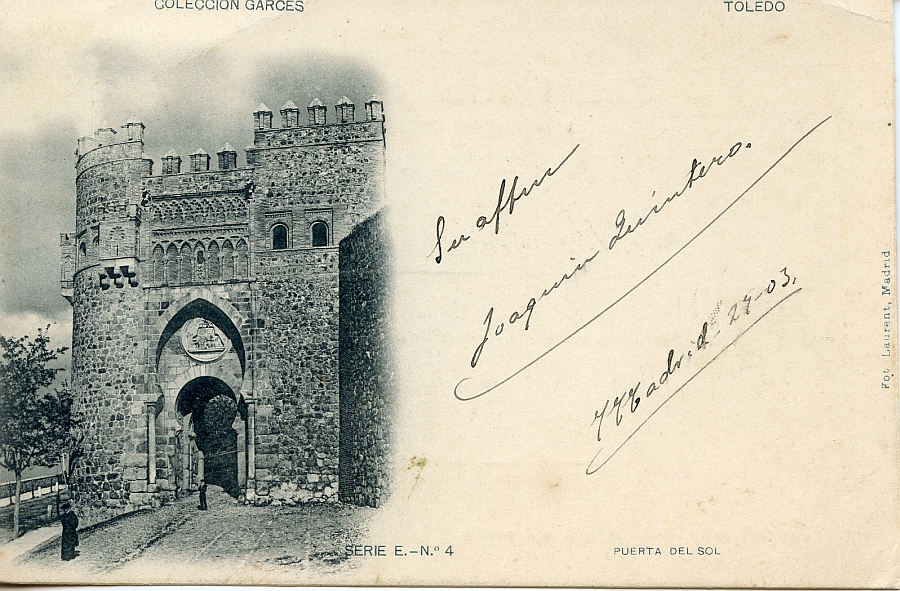 COLECCION GARCES
TOLEDO
Su affmo
Joaquin Quintero.
Madrid - 03.
Fot. Laurent, Madrid
SERIE E.-N.º 4
PUERTA DEL SOL